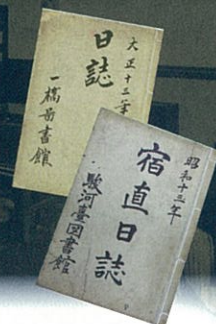 大正十二年
日誌
一橋啚書館
昭和十三年
宿直日誌
駿河臺図書館